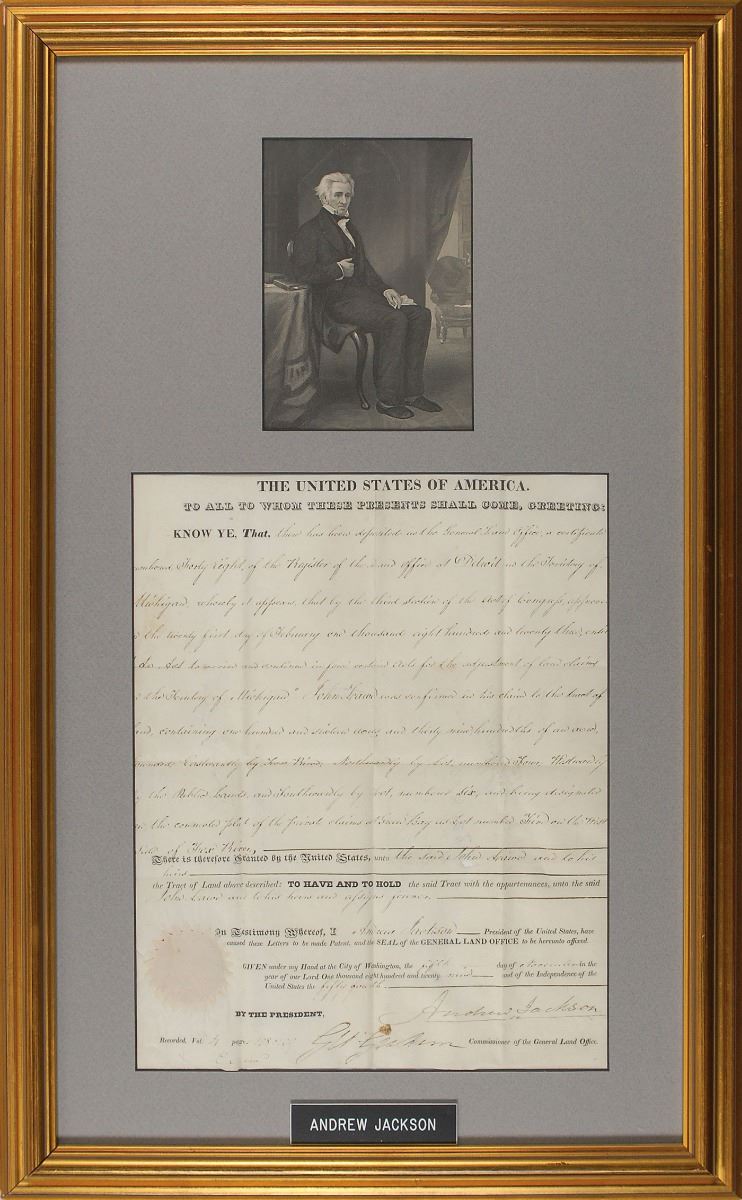 THE UNITED STATES OF AMERICA.
TO ALL TO WHOM THESE PRESENTS SHALL COME, GREETING:
KNOW YE, That, there has been deposited in the General Land Office, a certificate
numbered Forty Eight, of the Register of the Land Office at Detroit in the Territory of
Michigan, whereby it appears, that by the third section of the Act of Congress, approved
the twenty first day of February one thousand eight hundred and twenty three,
Act to revive and continue in force certain Acts for the adjustment of land claims
the Territory of Michigan" John Lawe was confirmed in his claim to the tract of
containing one hundred and sixteen acres, and thirty nine hundredths of an acre,
Eastwardly by Fox River, Northwardly by Lot, numbered Four, Westwardly
the Public Lands, and Southwardly by Lot, numbered Six, and being designated
the connected plat of the private claims at Green Bay as Lot number Five on the West
of Fox River,
There is therefore Granted by the United States, unto the said John Lawe and to his
heirs
the Tract of Land above described: TO HAVE AND TO HOLD the said Tract with the appurtenances, unto the said
John Lawe and to his heirs and assigns forever.
In Testimony Whereof, I Andrew Jackson President of the United States, have
caused these Letters to be made Patent, and the SEAL of the GENERAL LAND OFFICE to be hereunto affixed.
GIVEN under my Hand at the City of Washington, the fifth day of November in the
year of our Lord One thousand eight hundred and twenty nine and of the Independence of the
United States the fifty fourth.
Andrew Jackson
BY THE PRESIDENT,
Recorded, Vol. page. Commissioner of the General Land Office.
ANDREW JACKSON